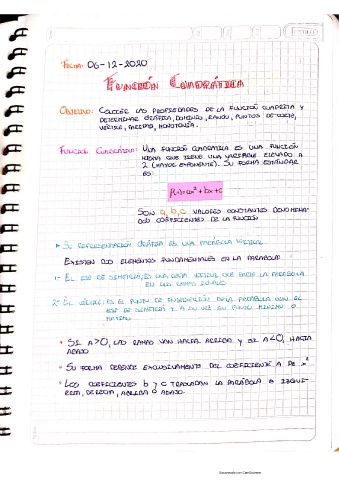 Fecha: 06-12-2020
Función Cuadrática
Objetivo: Conocer las propiedades de la función cuadrática y
determinar gráfica, dominio, rango, puntos de corte,
vértice, máximo, monotonía.
Función Cuadrática: Una función cuadrática es una función
misma que tiene una variable elevado a
2 (mayor exponente). Su forma estándar
es:
f(x)=ax²+bx+c
Son a, b, c valores constantes denomina-
dos coeficientes de la función
Su representación gráfica es una parábola vertical
Existen dos elementos fundamentales en la parábola
1- El eje de simetría; es una recta vertical que parte la parábola
en dos partes iguales
2- El vértice: es el punto de intersección de la parábola con el
eje de simetría y a su vez su punto mínimo o
máximo
Si a>0, las ramas van hacia arriba y si a<0, hacia
abajo
Su forma depende exclusivamente del coeficiente a de x²
Los coeficientes b y c trasladan la parábola a izquie-
rda, derecha, arriba o abajo.
Escaneado con CamScanner